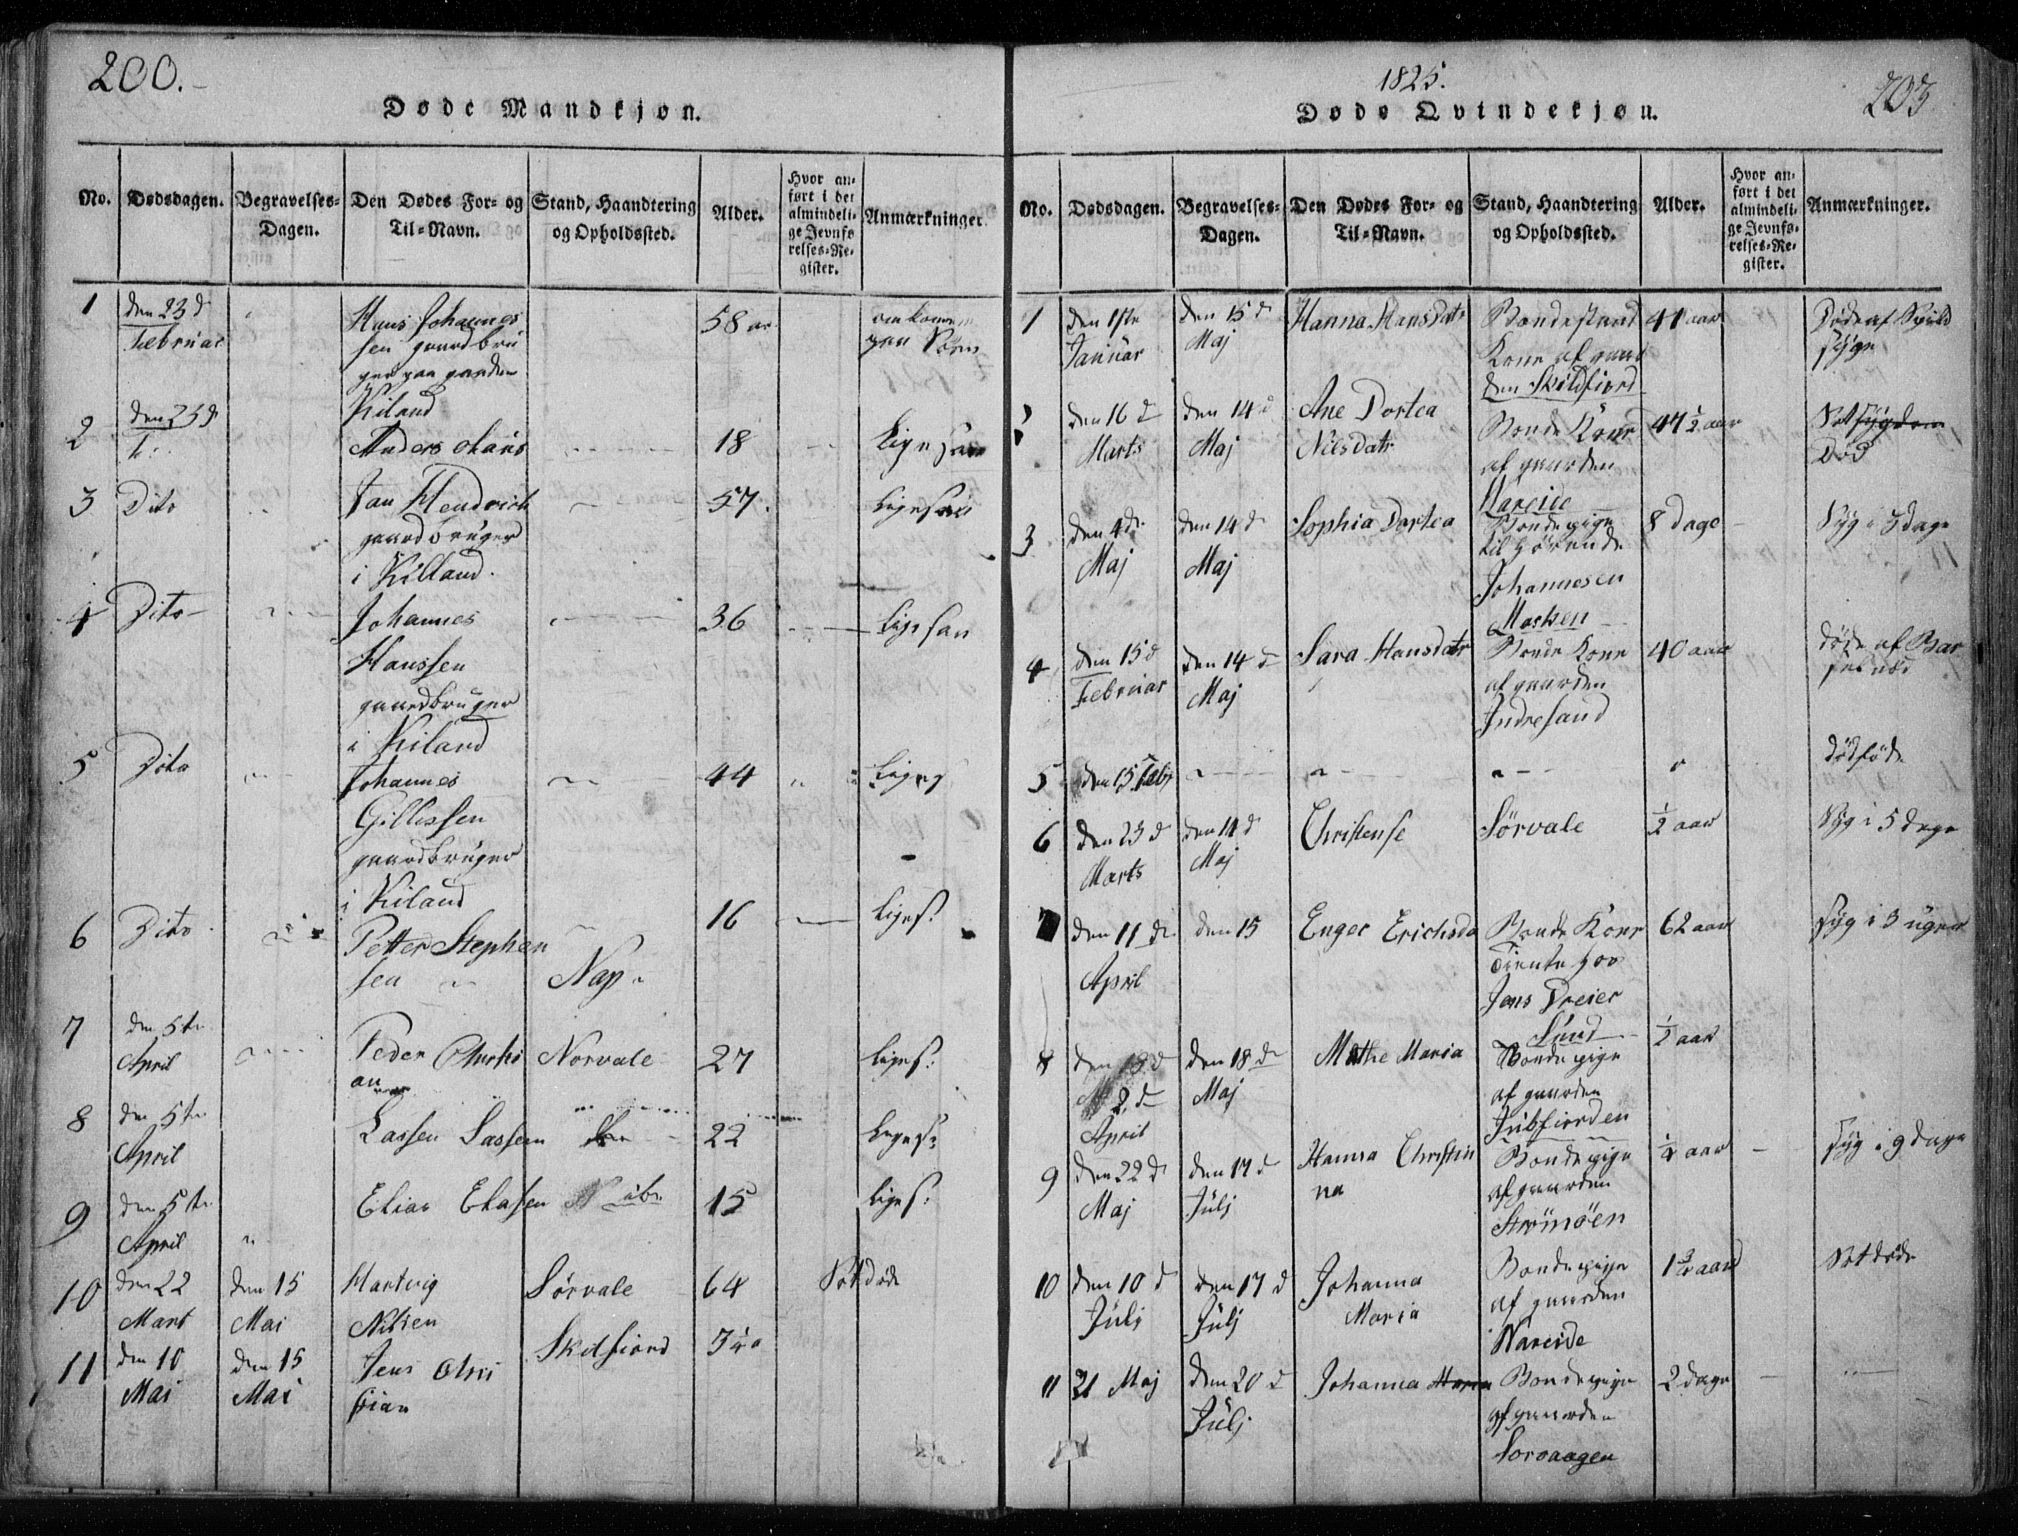 200.
Døde Mandkjøn.
No. Dødsdagen. Begravelses-Dagen. Den Dødes For- og Til-Navn. Stand, Haandtering og Opholdssted. Alder. Hvor anført i det almindelige Jevnførelses-Register. Anmærkninger.
1 den 23 d Februar Hans Johannessen gaardbruger paa gaarden Kiland 58 aar omkommen paa Søen
2 den 23 d F. Anders 18 Ligesaa
3 Dito Jan Hendrich gaardbruger i Killand. 57. Ligesaa
4 Dito Johannes Hanssen gaardbruger i Kiland 36 Ligesaa
5 Dito Johannes Gillissen gaardbruger i Kiland 44 Liges
6 Dito Petter Stephensen Nap 16 Liges:
7 den 5te April Peder Christian Norvale 27 Liges:
8 den 5te April Lassen Lassen 22 Liges:
9 den 5te April Elias Elasen 15 Liges:
10 den 22 Mart den 15 Mai Hartvig Nilsen Sørvale 64 Sotdøde
11 den 10 Mai den 15 Mai Jens Skelfiord
1825.
203
Døde Qvindekjøn.
No. Dødsdagen. Begravelses-Dagen. Den Dødes For- og Til-Navn. Stand, Haandtering og Opholdssted. Alder. Hvor anført i det almindelige Jevnførelses-Register. Anmærkninger.
1 den 1ste Januar den 15 d Maj Hanna Hansdatr Bondestand Kone af gaarden Skildfiord 41 aar Døde af syge
2 den 16 d Marts den 14 d Maj Ane Dortea Nilsdatr Bonde Kone af gaarden Nareide 47 ½ aar Sot Død
3 den 4 d Maj den 14 d Maj Sophia Dortea Bondepige tilhørende Johannesen Marken 8 dage Syg i 3 dage
4 den 15 d Februar den 14 d Maj Sara Hansdatr Bonde Kone af gaarden Indresand 40 aar døde af Barselnød
5 den 15 Febr dødføde
6 den 23 d Marts den 14 d Maj Christense Sørvale ½ aar Syg i 5 dage
den 11 d April den 15 Enger Erichsda Bonde Kone Tiente hos Jens Dreier Sund 62 aar Syg i 3 uger
8 2 d April den 18 d Maj Mathe Maria Bondepige af gaarden ½ aar
9 den 22 d Maj den 17 d Julj Hanna Christinna Bondepige af gaarden Strømøen aar Syg i 9 dage
10 den 10 d Julj den 17 d Julj Johanna Maria Bondepige af gaarden Nareide aar Sotdøde
11 21 Maj den 20 d Julj Johanna Bondepige af gaarden Sorvaagen 2 dage